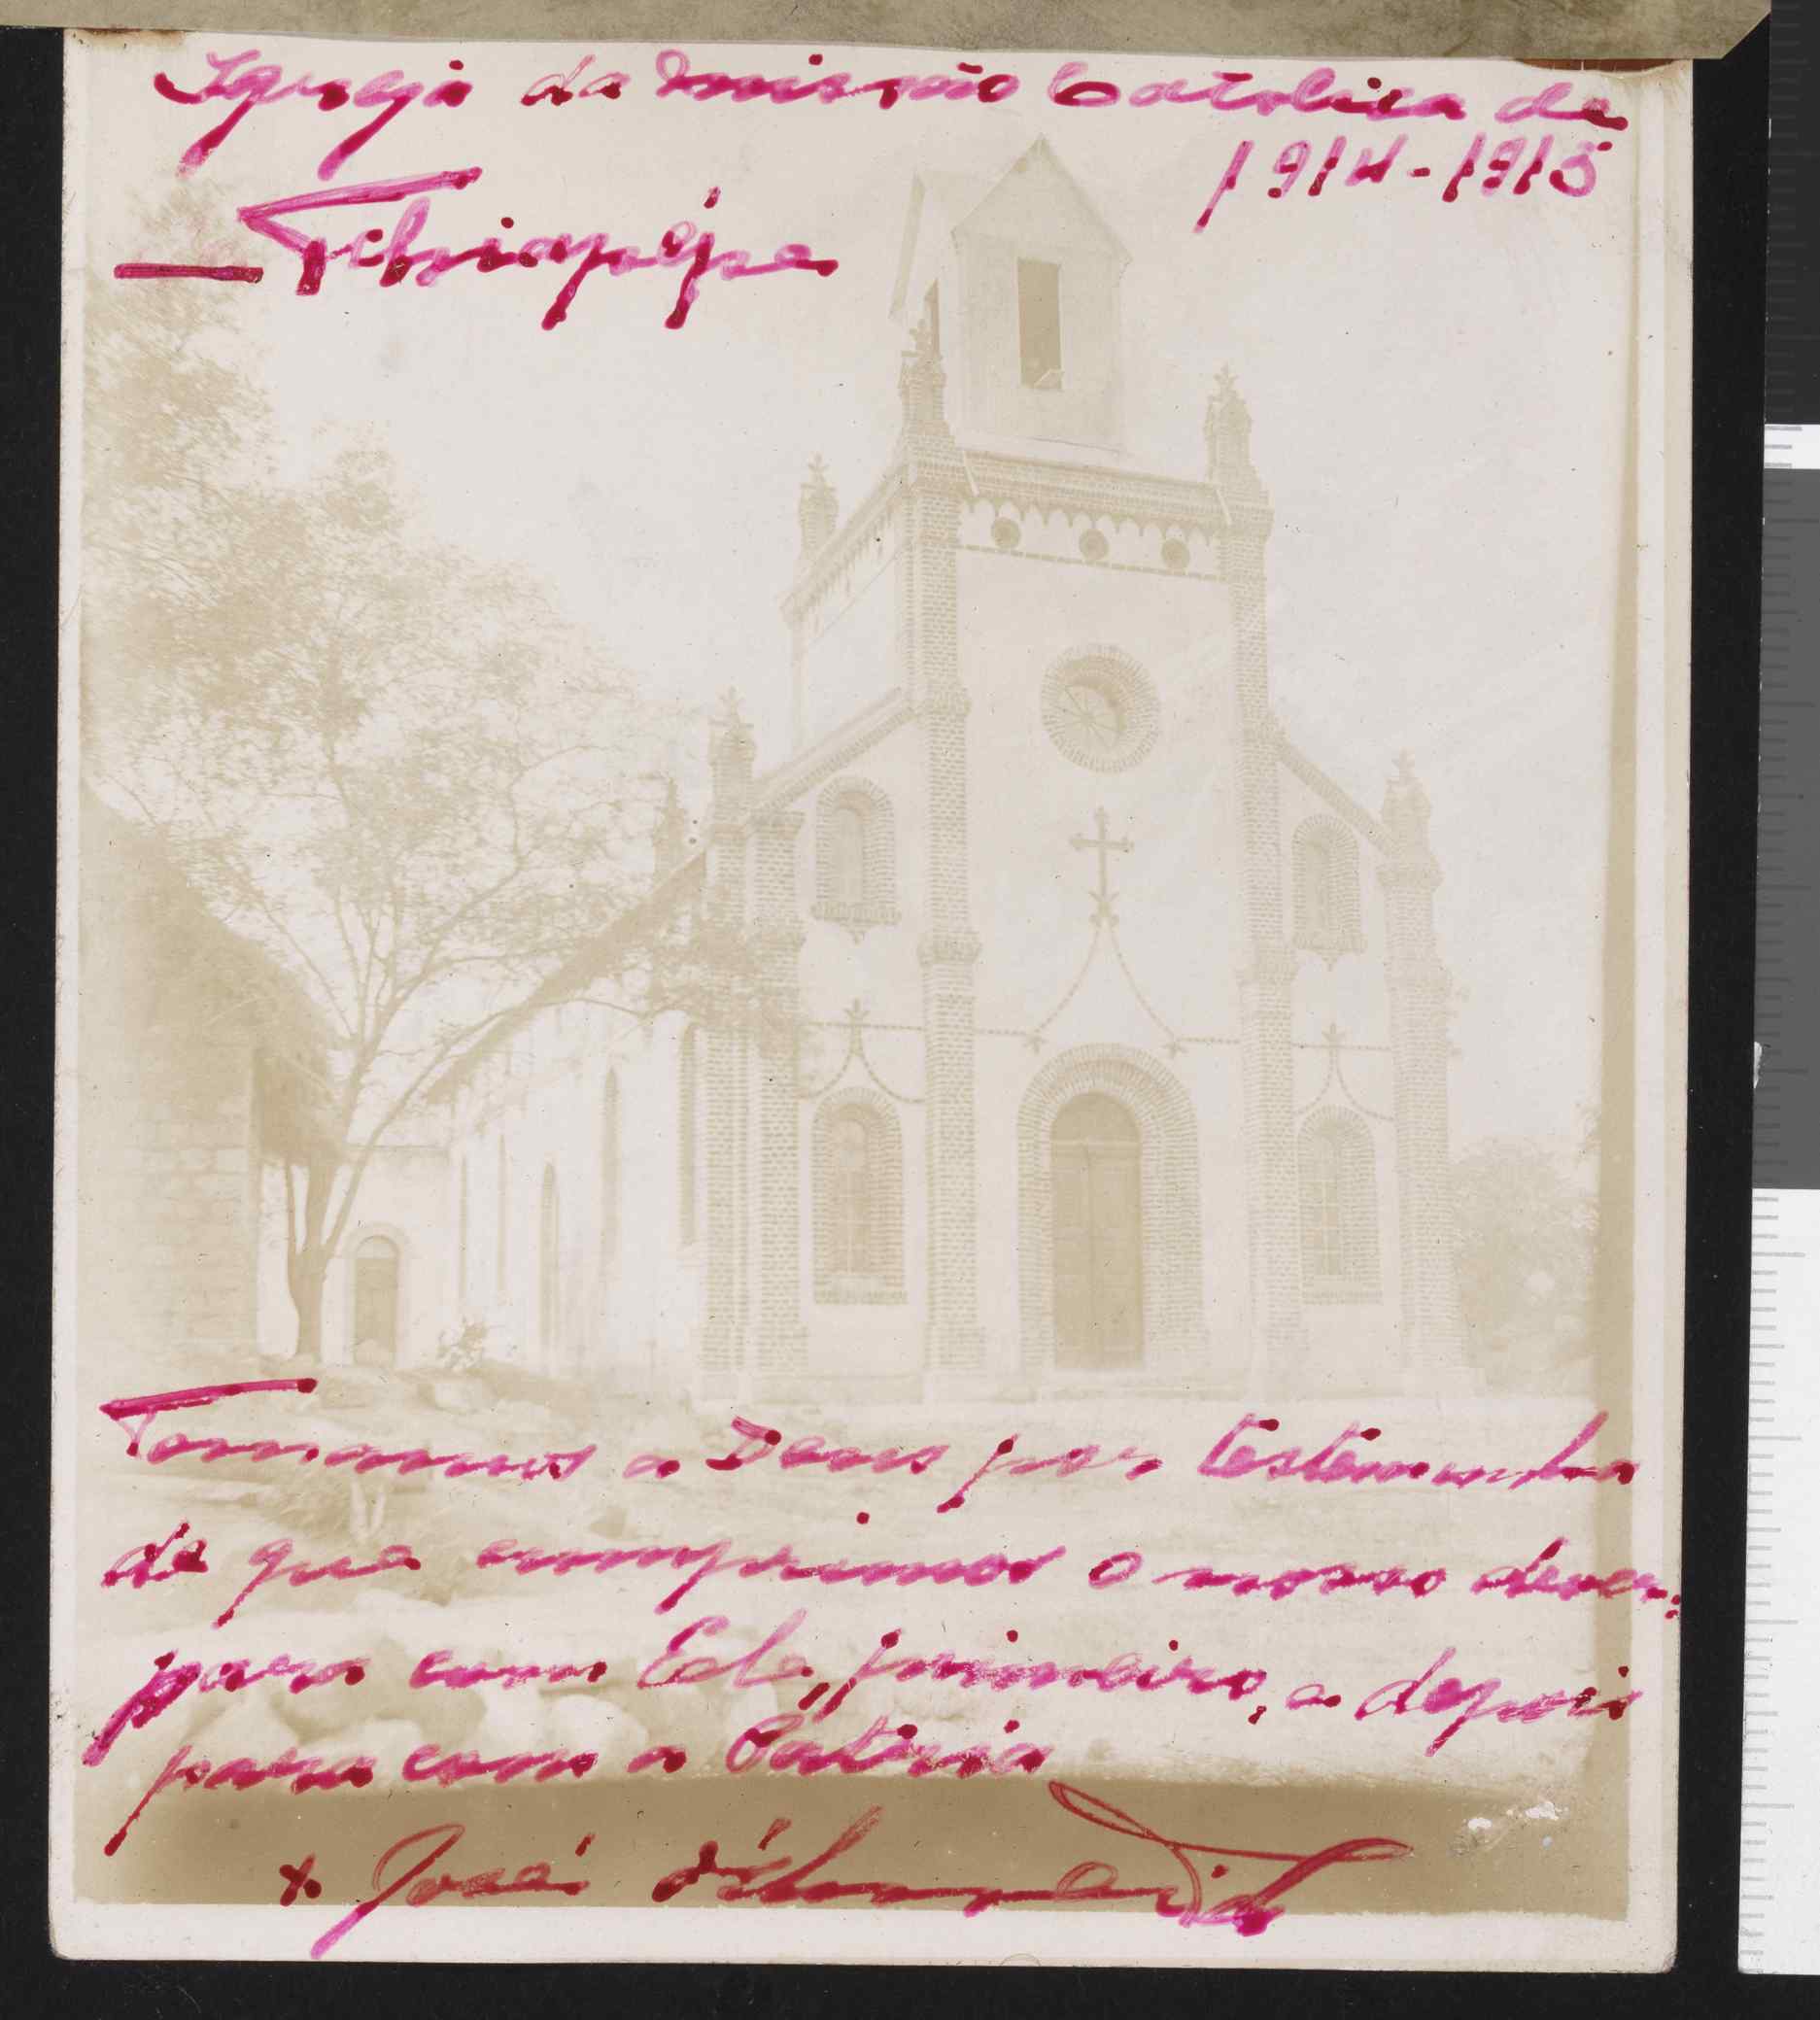 Igreja da missão Catolica de
1914-1915
— Tchiapepe
Tomamos a Deus por testemunha
de que cumprimos o nosso dever:
para com Ele, primeiro, e depois
para com a Pátria
+ José